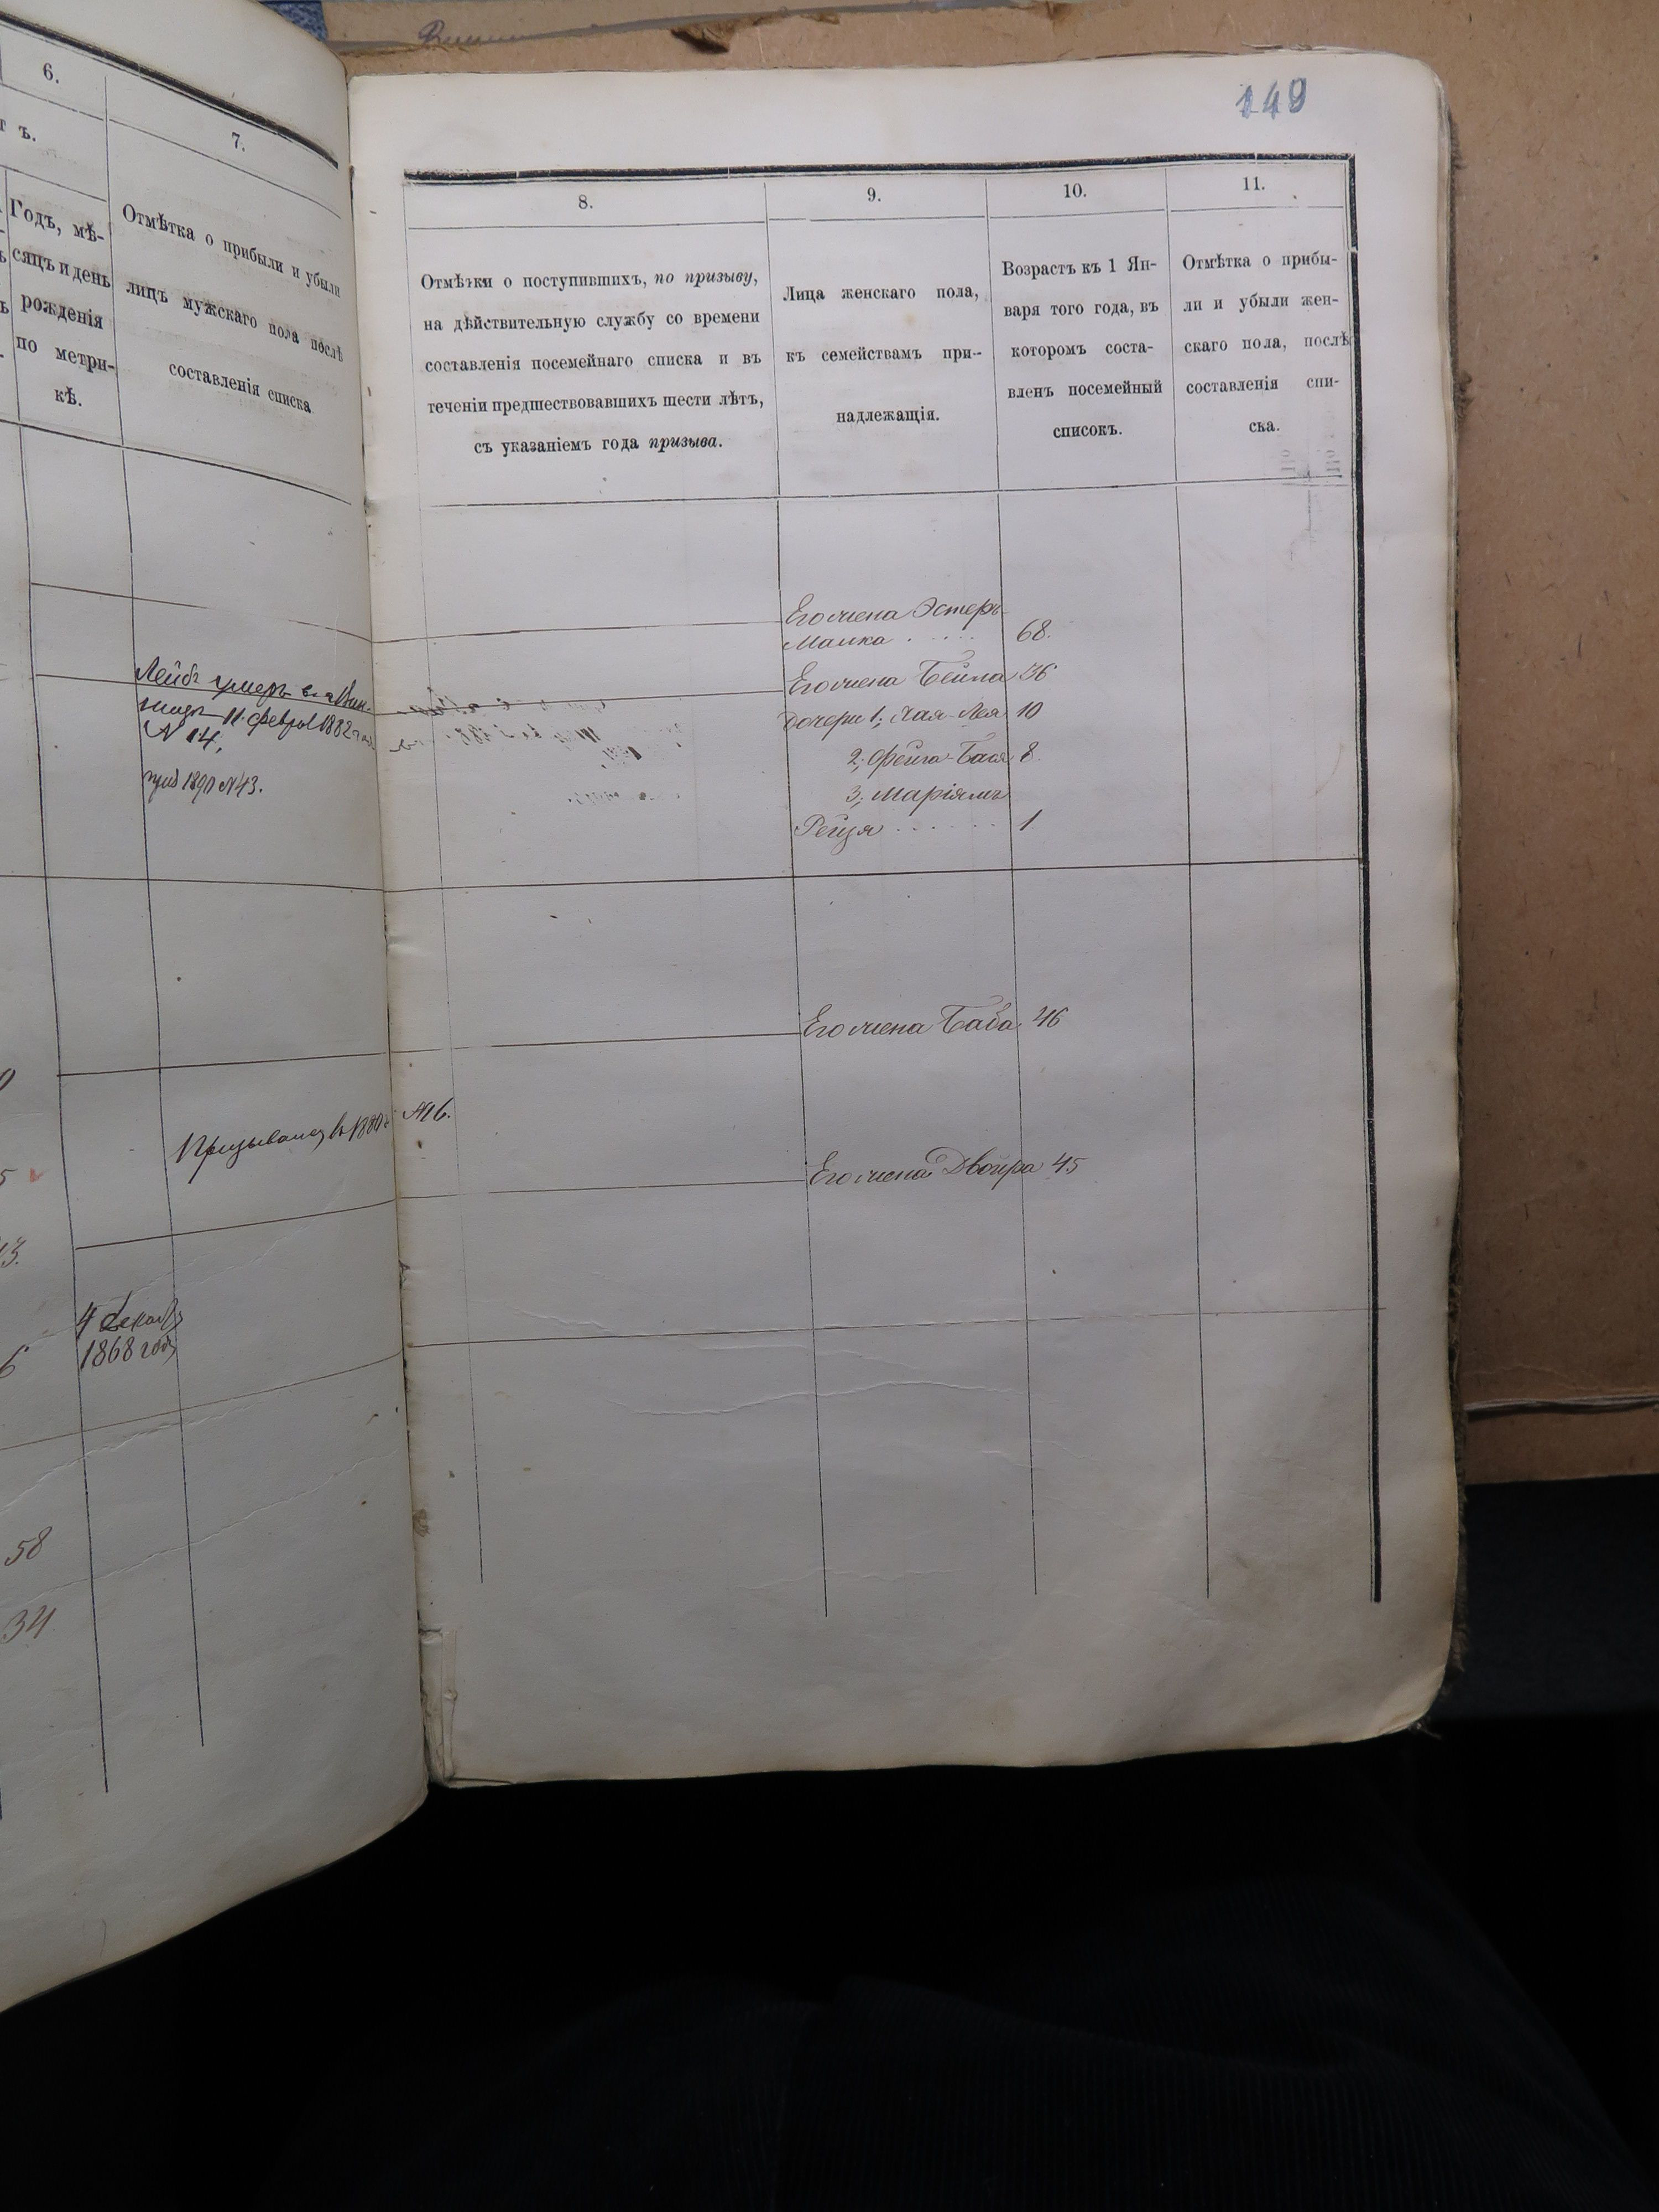 149
6.
7.
ъ.
Годъ, мѣ-
сяцъ и день
рожденія
по метри-
кѣ.
Отмѣтка о прибыли и убыли
лицъ мужскаго пола послѣ
составленія списка
Лейбъ умеръ
11 февраля 1882 года
№ 14,
1890 №43.
Призывался въ 1880 г. №16.
4 Декабр
1868 года
58
34
8.
Отмѣтки о поступившихъ, по призыву,
на дѣйствительную службу со времени
составленія посемейнаго списка и въ
теченіи предшествовавшихъ шести лѣтъ,
съ указаніемъ года призыва.
9.
Лица женскаго пола,
къ семействамъ при-
надлежащія.
10.
Возрастъ къ 1 Ян-
варя того года, въ
которомъ соста-
вленъ посемейный
списокъ.
11.
Отмѣтка о прибы-
ли и убыли жен-
скаго пола, послѣ
составленія спи-
ска.
Его жена Эстеръ-
Малка 68.
Его жена Бейла 36
Дочери 1, Хая-Лея 10
2, Фейга-Бася 8.
3, Маріямъ
Рейзя 1
Его жена Баба 46
Его жена Двойра 45